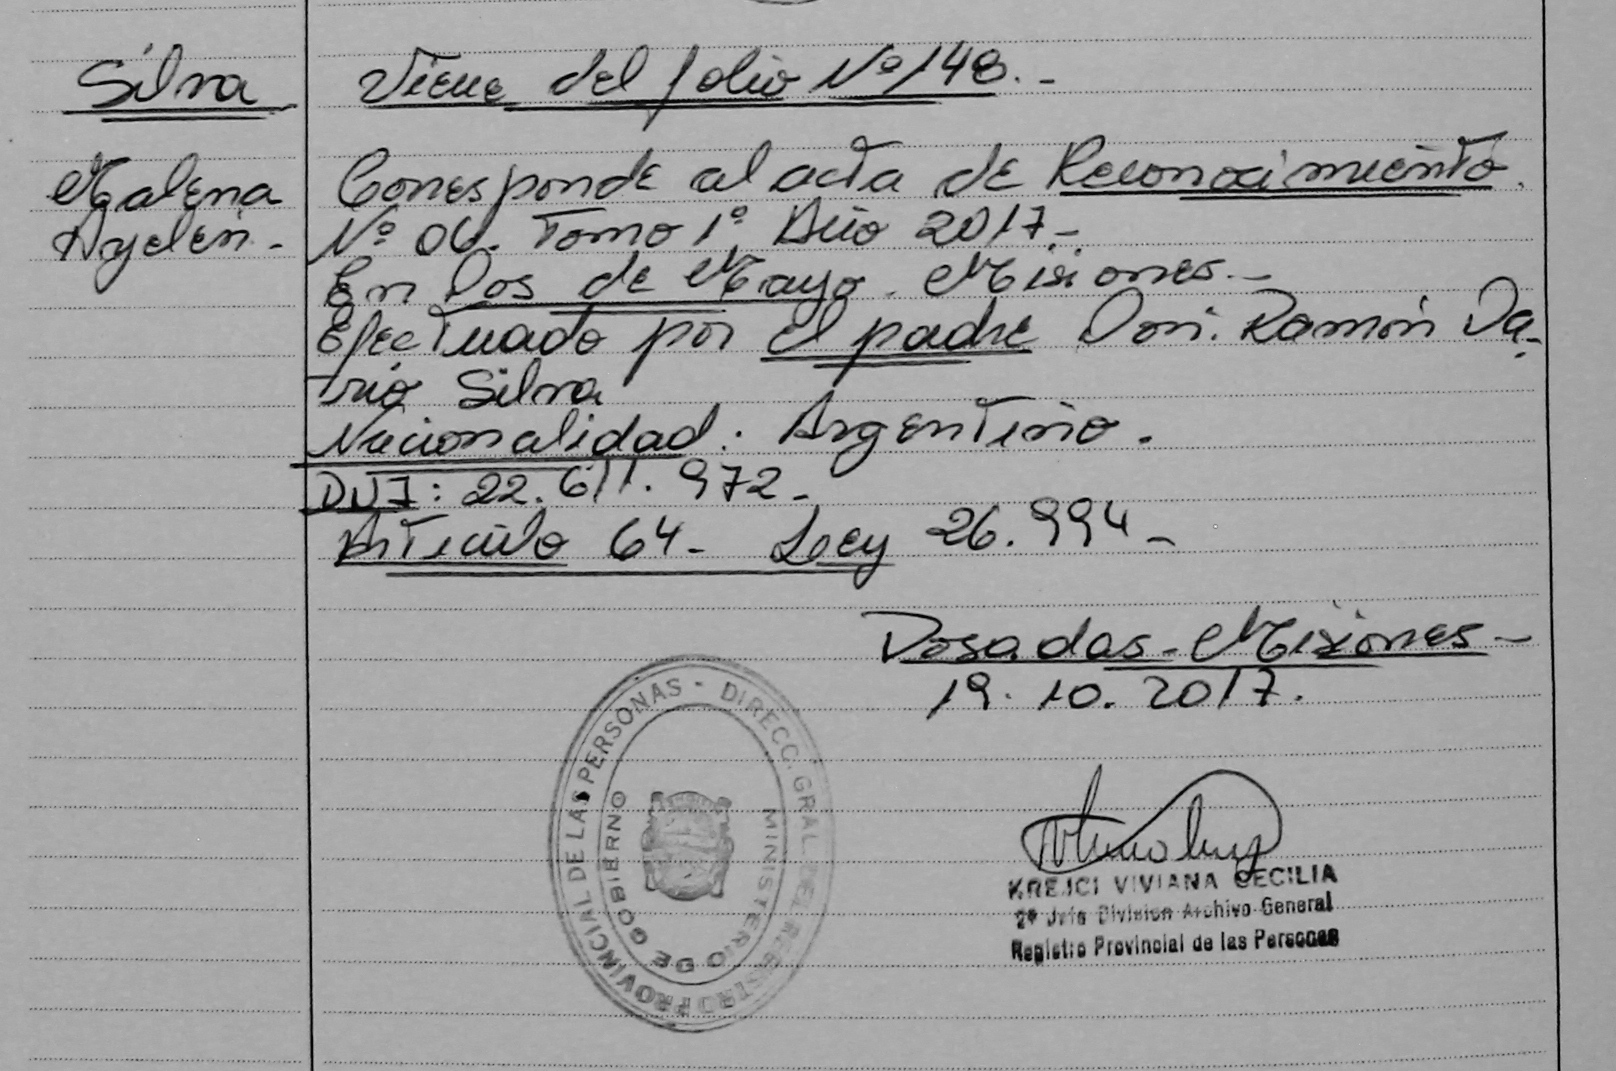 Silva
Malena
Ayelén.-
Viene del folio Nº 148.-
Corresponde al acta de Reconocimiento.
Nº 06. Tomo 1º. Año 2017.-
En Dos de Mayo. Misiones.-
Efectuado por el padre Don. Ramón Da-
rio Silva
Nacionalidad. Argentino.
DNI: 22.611.972.-
Artículo 64- Ley 26.994-
Posadas-Misiones-
19.10.2017.
DIRECC. GRAL. DEL REGISTRO PROVINCIAL DE LAS PERSONAS -
MINISTERIO DE GOBIERNO
KREJCI VIVIANA CECILIA
2º Jefe Division Archivo General
Registro Provincial de las Personas